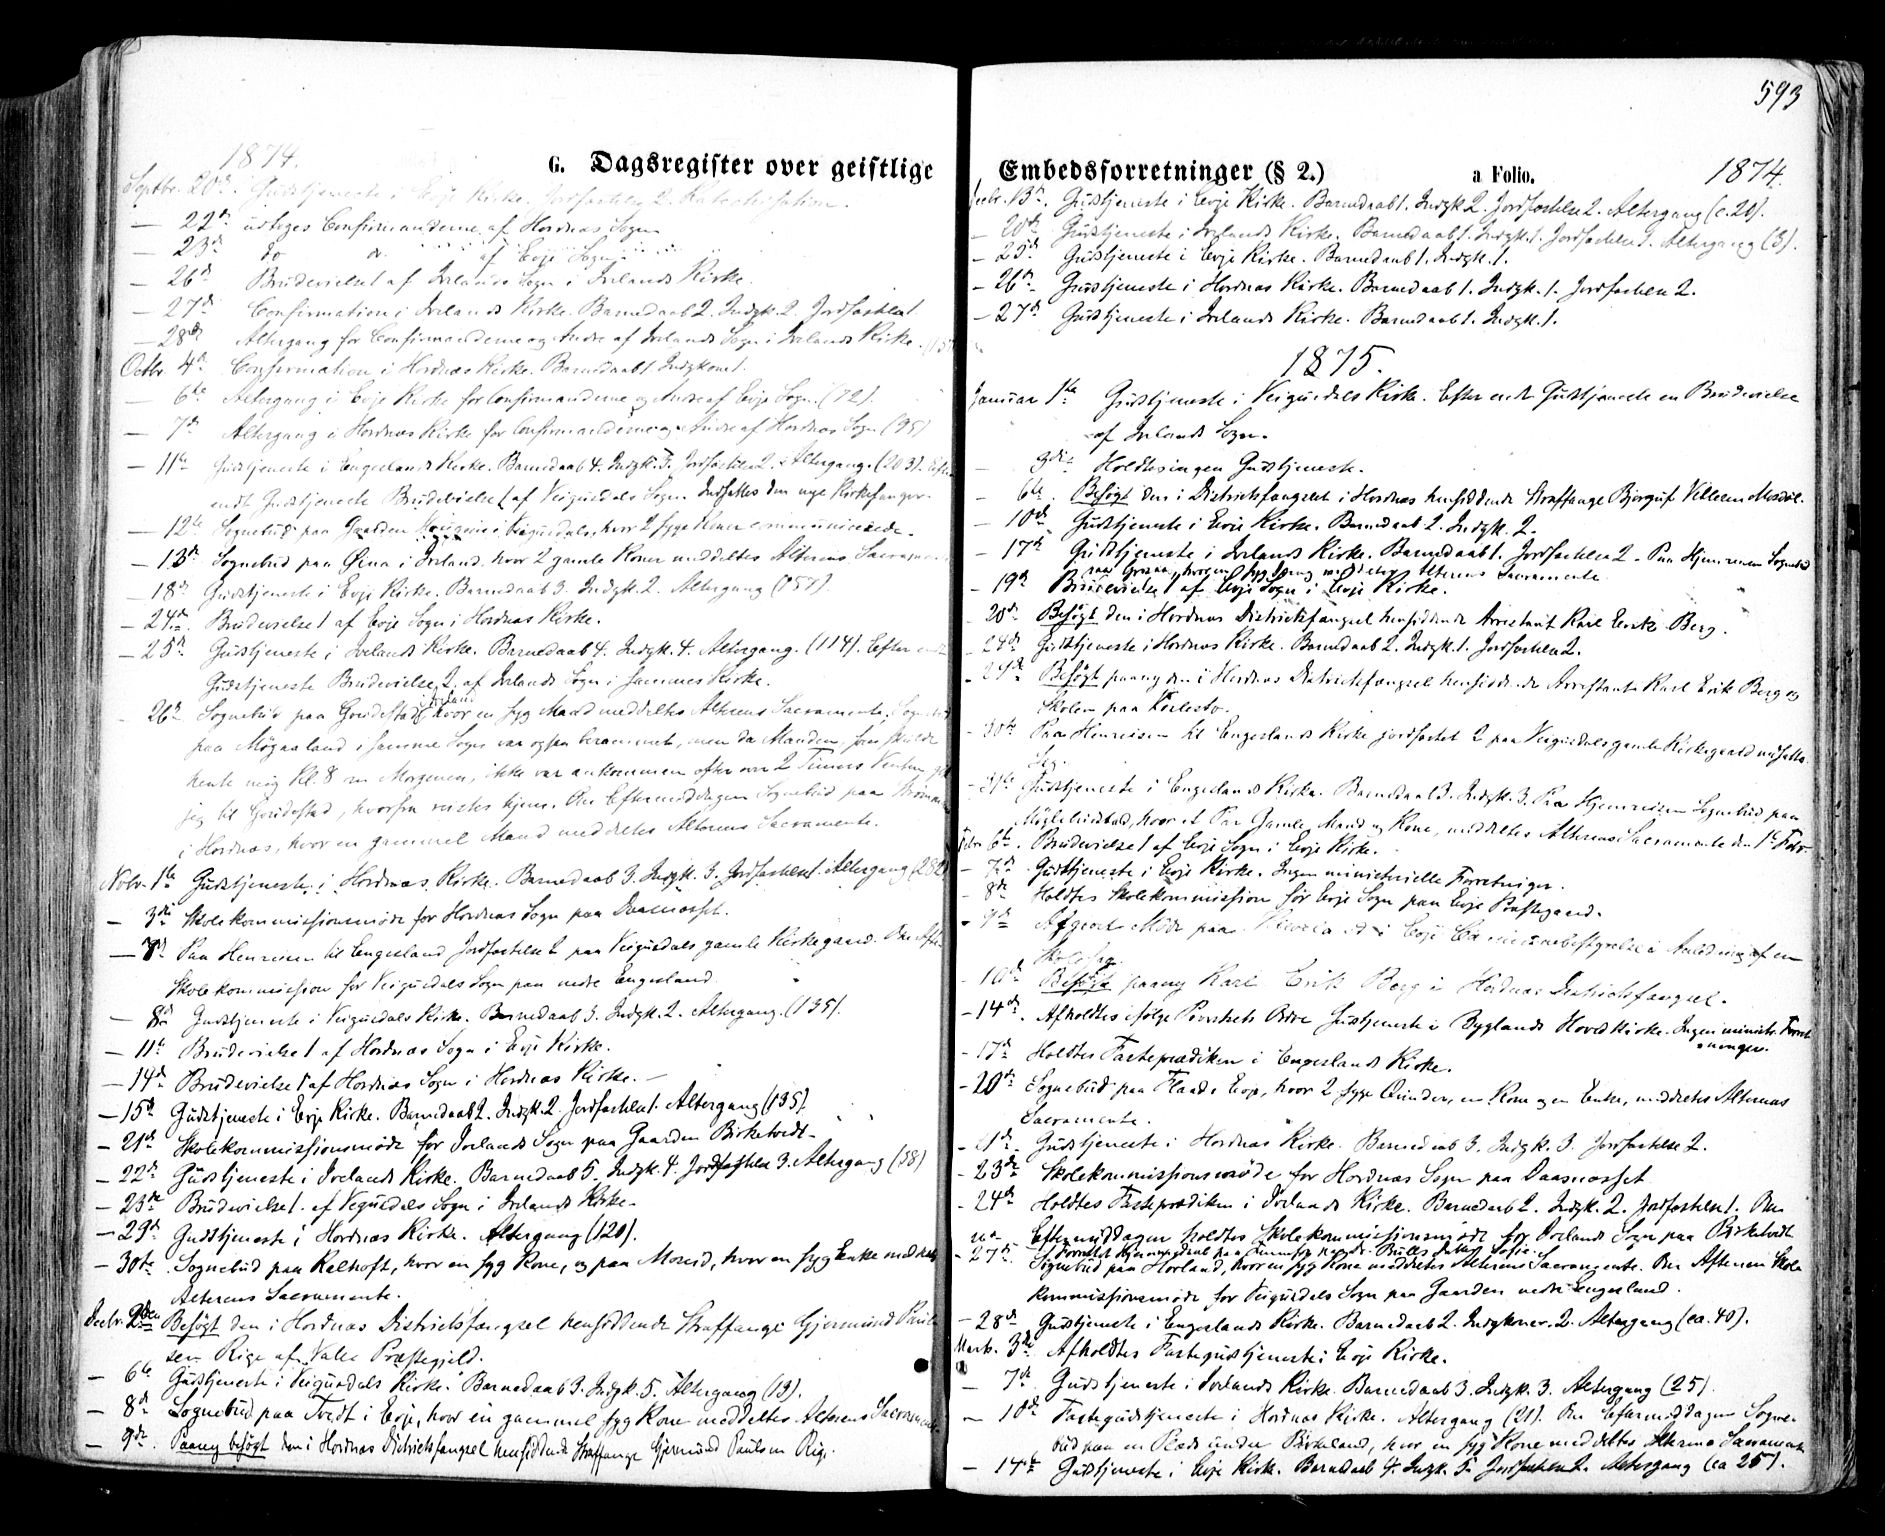 593
1874.
G. Dagsregister over geistlige
Septbr. 20de. Gudstjeneste i Evje Kirke. Jordfæstelse 2. Katechisation.
— 22de udtoges Confirmanderne af Hornnæs Sogn
— 23de do do af Evje Sogn
— 26de Brudevielse 1 af Ivelands Sogn i Ivelands Kirke.
— 27de Confirmation i Ivelands Kirke. Barnedaab 2. Indgk. 2. Jordfæstelse 1.
— 28de Altergang for Confirmanderne og Andre af Ivelands Sogn i Ivelands Kirke.
Octbr. 4de Confirmation i Hornnæs Kirke. Barnedaab 1 Indgkone 1.
— 6te Altergang i Evje Kirke for Confirmanderne og Andre af Evje Sogn. (72).
— 7de Altergang i Hornnæs Kirke for Confirmanderne og Andre af Hornnæs Sogn (95)
— 11te Gudstjeneste i Engeslands Kirke. Barnedaab 4. Indgk. 3. Jordfæstelse 2. Altergang. (203). Efter
endt Gudstjeneste Brudevielse 1 af Veigusdals Sogn. Indsattes den nye Kirkesanger.
— 12te Sognebud paa Gaarden i Veigusdal, hvor 2 syge Koner communicerede.
— 13de Sognebud paa Øina i Iveland hvor 2 gamle Koner meddeltes Alterens Sacramente
— 18de Gudstjeneste i Evje Kirke. Barnedaab 3. Indgk. 2. Altergang (151).
— 24de Brudevielse 1 af Evje Sogn i Hornnæs Kirke.
— 25de Gudstjeneste i Ivelands Kirke. Barnedaab 4. Indgk. 4. Altergang. (114). Efter endt
Gudstjeneste Brudevielse 2 af Ivelands Sogn i sammes Kirke.
— 26de Sognebud paa Goudestad hvor en syg Mand meddeltes Alterens Sacramente. Sognebud
paa Møgaaland i samme Sogn var ogsaa berammet, men da Manden, som skulde
hente mig Kl. 8 om Morgenen, ikke var ankommen efter over 2 Timers Venten
jeg til Goudestad, hvorfra reistes hjem. Om Eftermiddagen Sognebud paa
i Hornnæs, hvor en gammel Mand meddeltes Alterens Sacramente.
Novbr. 1te Gudstjeneste i Hornnæs Kirke. Barnedaab 3. Indgk. 3. Jordfæstelse 1. Altergang (252)
— 3die Skolekommissionsmøde for Hornnæs Sogn paa Daasnæsset.
— 7de Paa Henreisen til Engesland Jordfæstelse 2 paa Veigusdals gamle Kirkegaard. Om Aften
Skolekommission for Veigusdals Sogn paa nedre Engesland.
— 8de Gudstjeneste i Veigusdals Kirke. Barnedaab 3. Indgk. 2. Altergang. (135).
— 11te Brudevielse 1 af Hornnæs Sogn i Evje Kirke.
— 14de Brudevielse 1 af Hornnæs Sogn i Hornnæs Kirke. —
— 15de Gudstjeneste i Evje Kirke. Barnedaab 2. Indgk. 2. Jordfæstelse 1. Altergang (135).
— 21de Skolekommissionsmøde for Ivelands Sogn paa Gaarden Birketvedt.
— 22de Gudstjeneste i Ivelands Kirke. Barnedaab 5. Indgk. 4. Jordfæstelse 3. Altergang (58)
— 23de Brudevielse 1. af Veigusdals Sogn i Ivelands Kirke.
— 29de Gudstjeneste i Hornnæs Kirke. Altergang (120).
— 30te Sognebud paa Kalhoft, hvor en syg Kone, og paa Moseid, hvor en syg Enke meddeltes
Alterens Sacramente.
Decbr. 2den Besøgt den i Hornnæs Districtsfængsel hensiddende Straffange Gjermund Paul-
sen Rige af Valle Præstegjeld.
— 6te Gudstjeneste i Veigusdals Kirke. Barnedaab 3. Indgk. 5. Altergang (13).
— 8de Sognebud paa Tvedt i Evje, hvor en gammel syg Kone meddeltes Alterens Sacramente.
— 9de. Paany besøgt den i Hornnæs Districtsfængsel hensiddende Straffange Gjermund Paulsen Rige.
Embedsforretninger (§ 2.) a Folio. 1874.
Decbr. 13de. Gudstjeneste i Evje Kirke. Barnedaab 1. Indgk. 2. Jordfæstelse 2. Altergang (c. 20).
— 20de Gudstjeneste i Ivelands Kirke. Barnedaab 1. Indgk. 1. Jordfæstelse 1. Altergang (3).
— 25de Gudstjeneste i Evje Kirke. Barnedaab 1. Indgk. 1.
— 26de Gudstjeneste i Hornnæs Kirke. Barnedaab 1. Indgk. 1. Jordfæstelse 2.
— 27de Gudstjeneste i Ivelands Kirke. Barnedaab 1. Indgk. 1.
1875.
Januar 1te Gudstjeneste i Veigusdals Kirke. Efter endt Gudstjeneste en Brudevielse
af Ivelands Sogn.
— 3die Holdtes ingen Gudstjeneste.
— 6te Besøgt den i Districtsfængslet i Hornnæs hensiddende Straffange Bjorguf Villumsen
— 10de Gudstjeneste i Evje Kirke. Barnedaab 2. Indgk. 2.
— 17de Gudstjeneste i Ivelands Kirke. Barnedaab 1. Jordfæstelse 2. Paa Hjemreisen Sognebud
paa hvor en syg meddeltes Alterens Sacramente.
— 19de Brudevielse 1 af Evje Sogn i Evje Kirke.
— 20de Besøgt den i Hornnæs Districtsfængsel hensiddende Arrestant Karl Erik Berg.
— 24de Gudstjeneste i Hornnæs Kirke. Barnedaab 2. Indgk. 1. Jordfæstelse 2.
— 29de Besøgt paany den i Hornnæs Districtsfængsel hensiddende Arrestant Karl Erik Berg og
Skolen paa
— 30te Paa Henreisen til Engeslands Kirke jordfæstet 2 paa Veigusdals gamle Kirkegaard
— 31te Gudstjeneste i Engeslands Kirke. Barnedaab 3. Indgk. 3. Paa Hjemreisen Sognebud paa
hvor et Par Gamle, Mand og Kone, meddeltes Alterens Sacramente den 1te Febr.
Febr. 6te Brudevielse 1 af Evje Sogn i Evje Kirke.
— 7de Gudstjeneste i Evje Kirke. Ingen ministerielle Forretninger.
— 8de Holdtes Skolekommission for Evje Sogn paa Evje Præstegaard.
— 9de Møde paa i Evje i Anledning af en
— 10de Besøgt paany Karl Erik Berg i Hornnæs Districtsfængsel.
— 14de. Afholdtes ifølge Provstens Ordre Gudstjeneste i Byglands Hovedkirke. Ingen minist. Forret-
ninger.
— 17de Holdtes Fasteprædiken i Engeslands Kirke.
— 20de Sognebud paa Flaat i Evje, hvor 2 syge Qvinder, en Kone og en Enke, meddeltes Alterens
Sacramente.
— 21de. Gudstjeneste i Hornnæs Kirke. Barnedaab 3. Indgk. 3. Jordfæstelse 2.
— 23de Skolekommissionsmøde for Hornnæs Sogn paa Daasnæsset
— 24de Holdtes Fasteprædiken i Ivelands Kirke. Barnedaab 2. Indgk. 2. Jordfæstelse 1. Om
Eftermiddagen holdtes Skolekommissionsmøde for Ivelands Sogn paa Birketvedt
— 27de. Sognebud paa Hovland, hvor en syg Kone meddeltes Alterens Sacramente. Om Aftenen Skole
kommissionsmøde for Veigusdals Sogn paa Gaarden nedre Engesland.
— 28de Gudstjeneste i Engeslands Kirke. Barnedaab 2. Indgkoner. 2. Altergang (ca. 40).
Marts. 3die Afholdtes Fastegudstjeneste i Evje Kirke.
— 7de Gudstjeneste i Ivelands Kirke. Barnedaab 3. Indgk. 3. Altergang (25).
— 10de Fastegudstjeneste i Hornnæs Kirke. Altergang (21). Om Eftermiddagen Sogne-
bud paa en Plads under Birkeland, hvor en syg Kone meddeltes Alterens Sacramente
— 14de Gudstjeneste i Evje Kirke. Barnedaab 4. Indgk. 5. Jordfæstelse 2. Altergang (ca 25).